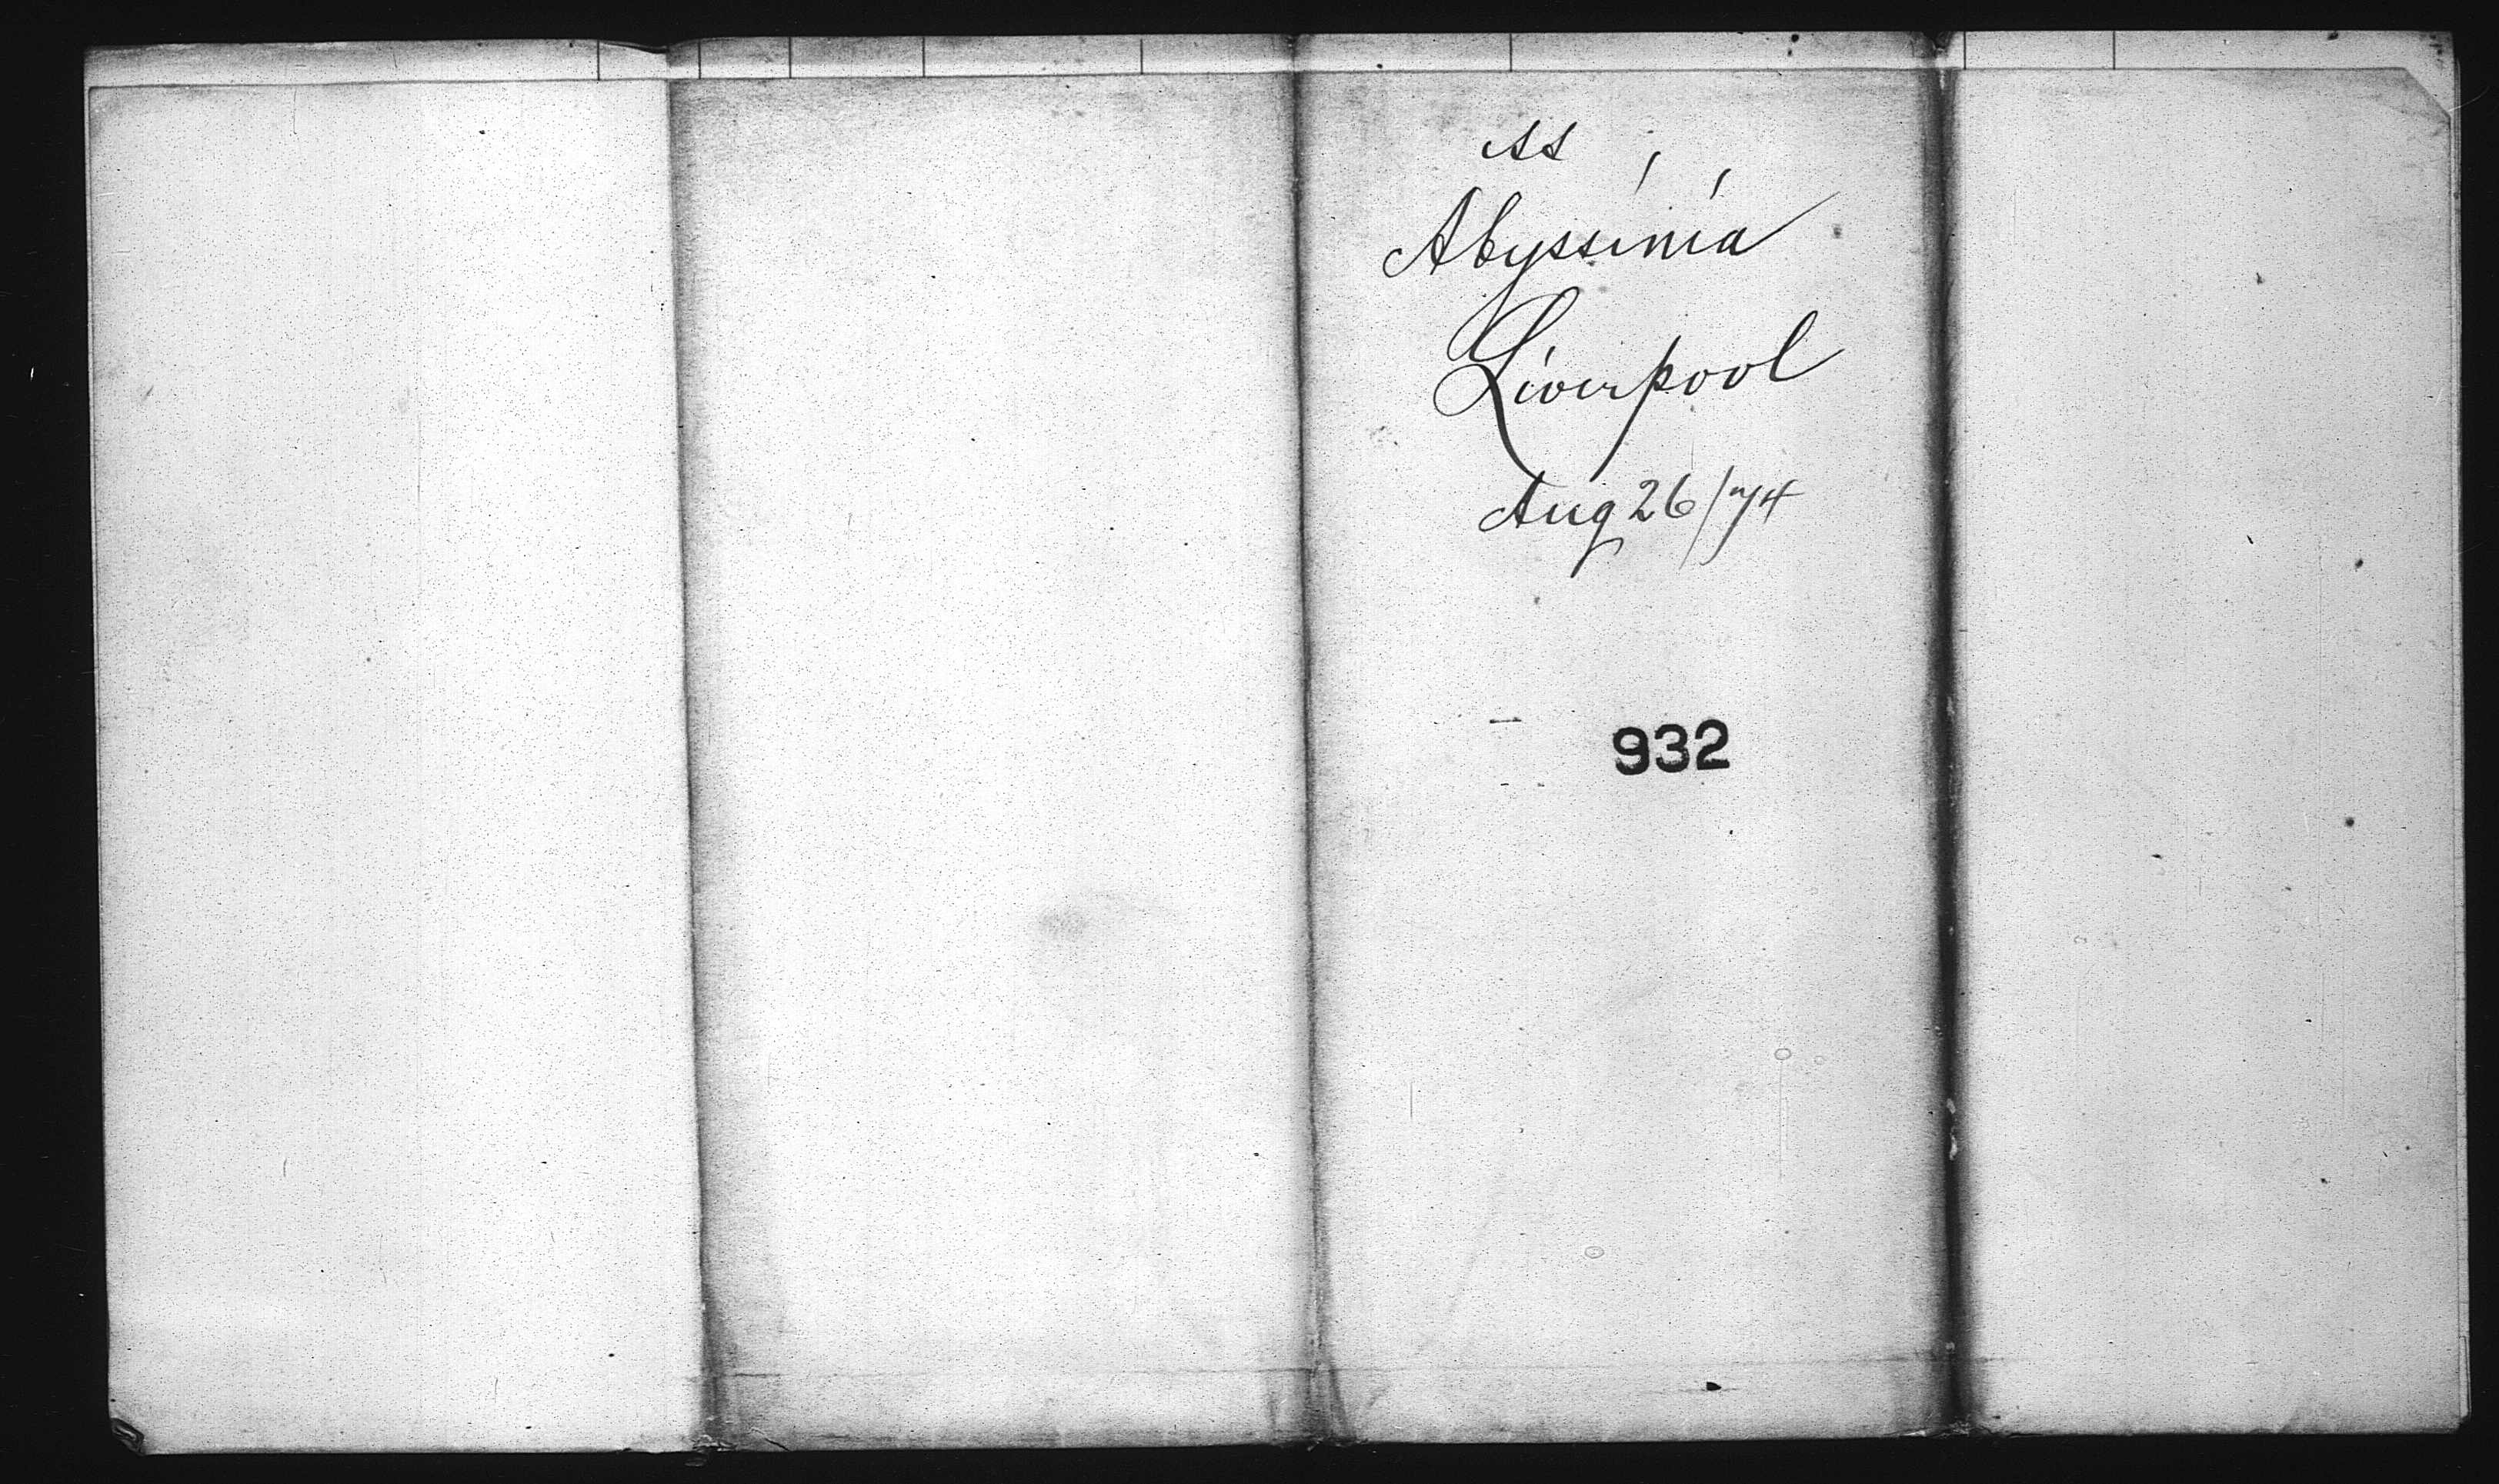 SS
Abyssinia
Liverpool
Aug 26/74
932